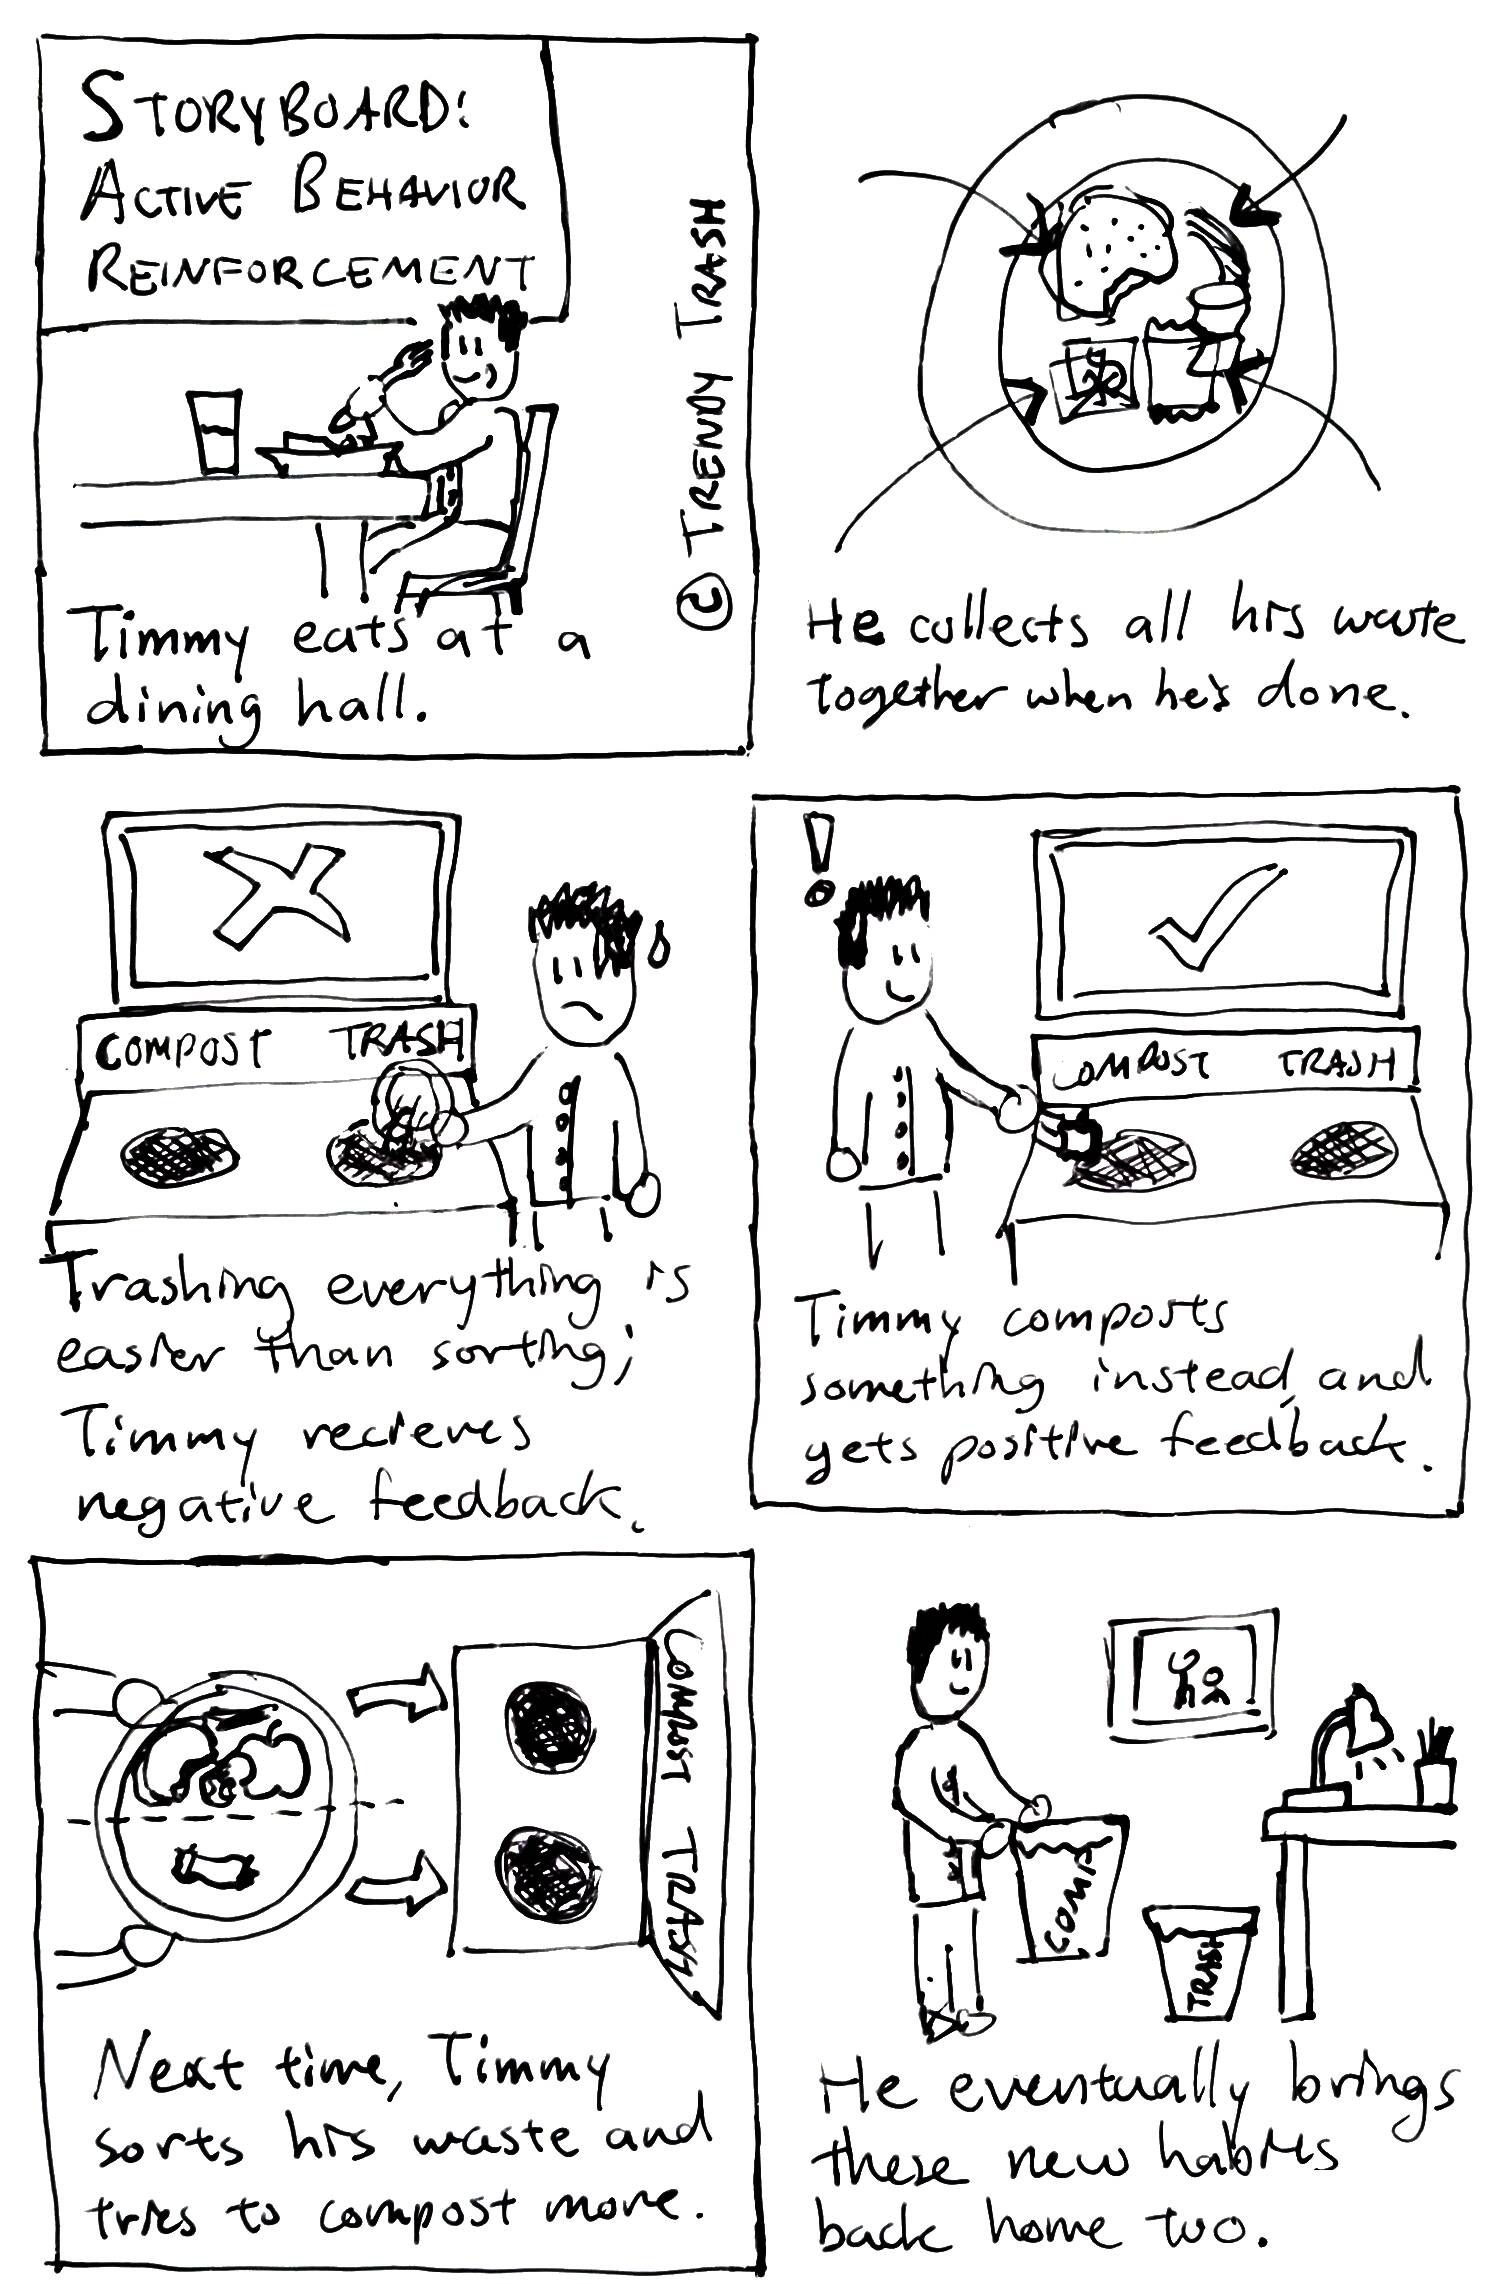 STORYBOARD:
ACTIVE BEHAVIOR
REINFORCEMENT
© TRENDY TRASH
Timmy eats at a
dining hall.
He collects all his waste
together when he's done.
COMPOST TRASH
Trashing everything is
easier than sorting;
Timmy recieves
negative feedback.
!
COMPOST TRASH
Timmy composts
something instead, and
gets positive feedback.
COMPOST TRASH
Next time, Timmy
sorts his waste and
tries to compost more.
TRASH
He eventually brings
these new habits
back home too.